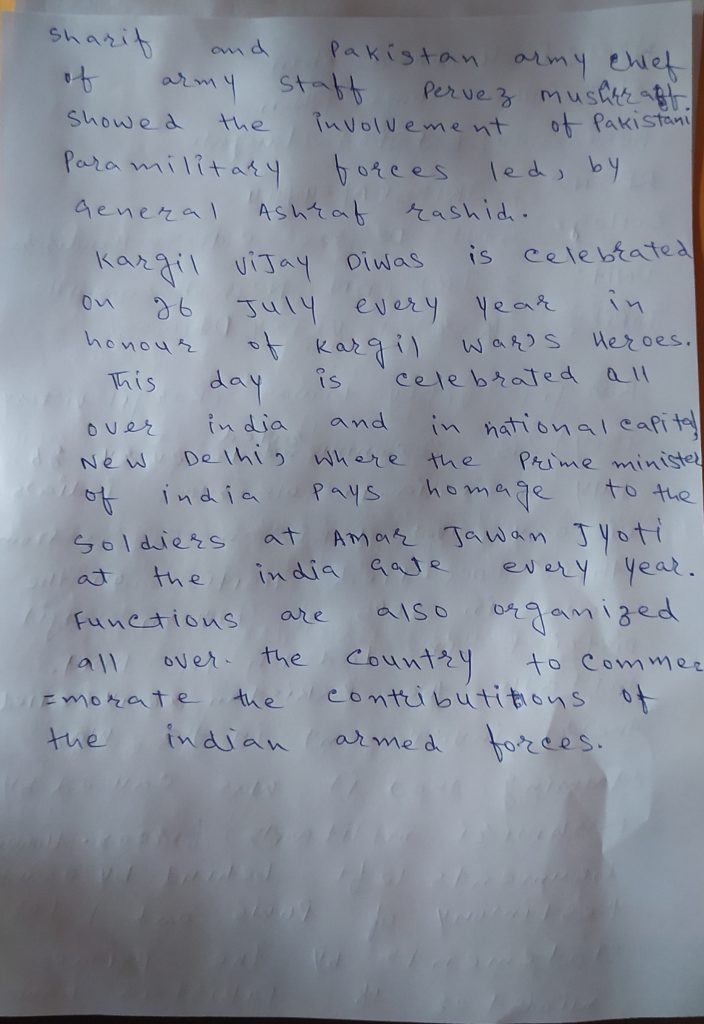 Sharif and Pakistan army chief
of army staff Pervez musharraff.
showed the involvement of Pakistani
Paramilitary forces led, by
General Ashraf rashid.
Kargil Vijay Diwas is celebrated
on 26 July every year in
honour of Kargil War's Heroes.
This day is celebrated all
over india and in national capital
New Delhi, where the Prime minister
of india pays homage to the
Soldiers at Amar Jawan Jyoti
at the india Gate every year.
Functions are also organized
all over. the country to commem
=morate the contributitions of
the indian armed forces.